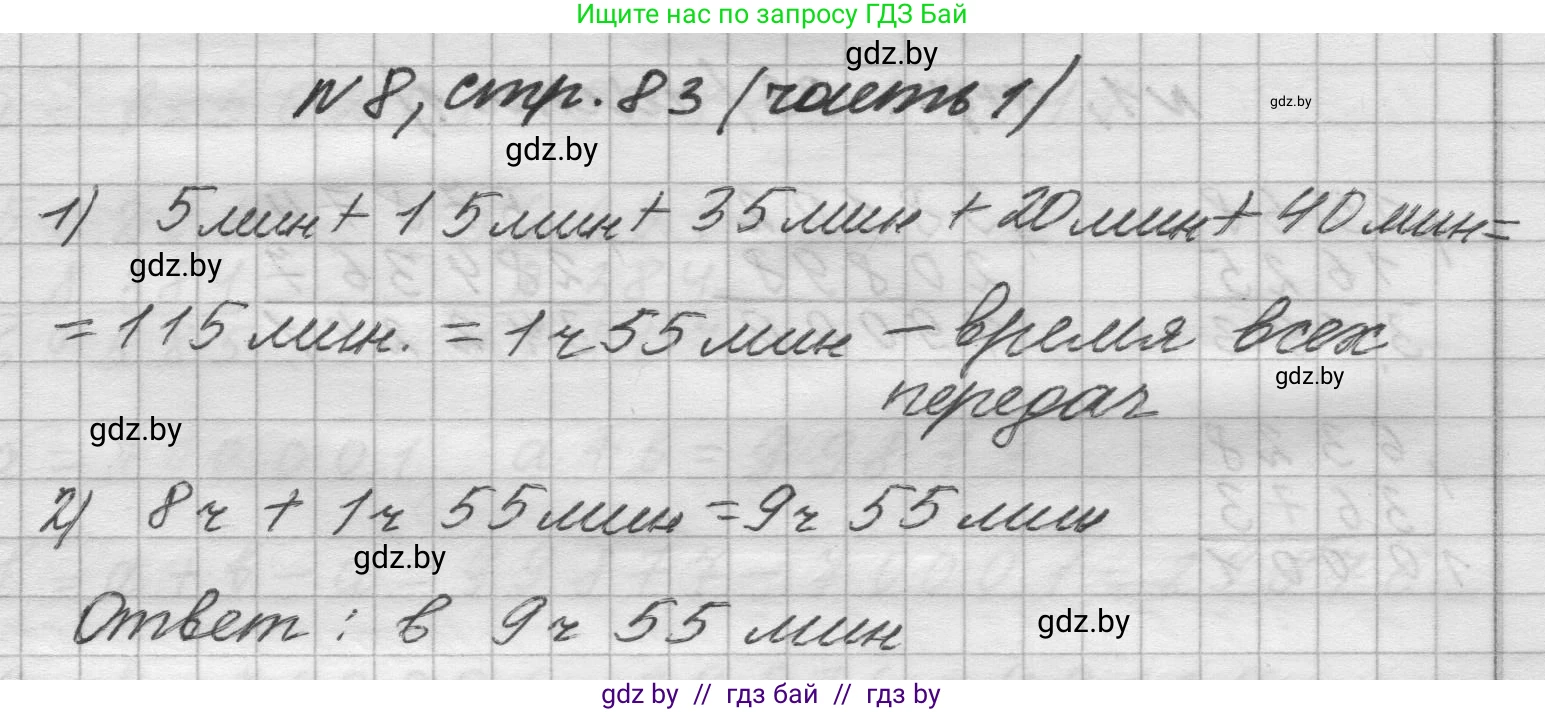 Ищите нас по запросу ГДЗ Бай
gdz.by
N8, стр. 83 (часть 1)
gdz.by
gdz.by
1) 5мин + 15мин + 35мин + 20мин + 40мин =
gdz.by
= 115мин. = 1ч 55мин – время всех
gdz.by
передач
gdz.by
2) 8ч + 1ч 55мин = 9ч 55мин
gdz.by
Ответ: в 9ч 55 мин
gdz.by
gdz by // гдз бай // гдз by